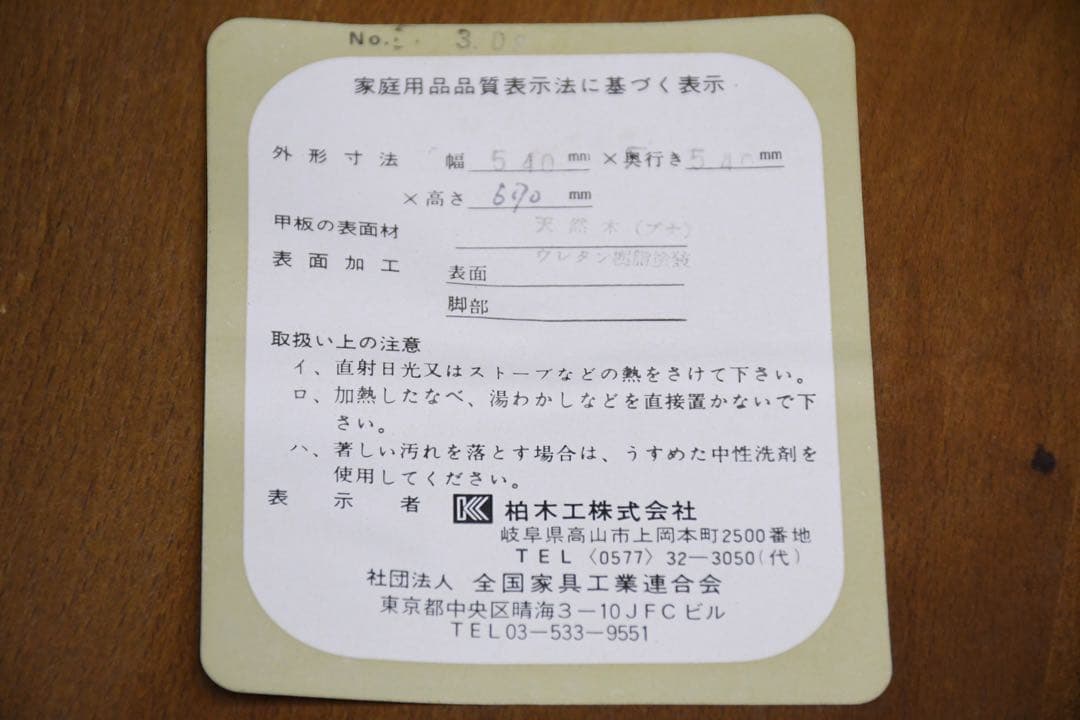 No. 3.0
家庭用品品質表示法に基づく表示
外形寸法 幅 540 mm ×奥行き 540 mm
×高さ 690 mm
甲板の表面材 天然木(ブナ)
表面加工 表面 ウレタン樹脂塗装
脚部
取扱い上の注意
イ、直射日光又はストーブなどの熱をさけて下さい。
ロ、加熱したなべ、湯わかしなどを直接置かないで下
さい。
ハ、著しい汚れを落とす場合は、うすめた中性洗剤を
使用してください。
表示者 柏木工株式会社
岐阜県高山市上岡本町2500番地
TEL〈0577〉32―3050(代)
社団法人 全国家具工業連合会
東京都中央区晴海3―10JFCビル
TEL03―533―9551